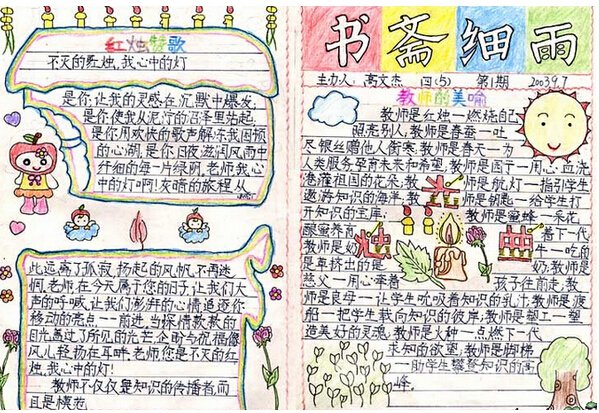 红烛颂歌
不灭的红烛,我心中的灯
是你,让我的灵感在沉默中爆发,
是你,使我从泥泞的沼泽里站起,
是你用欢快的歌声解冻我困顿
的心湖,是你日夜滋润风雨中
纤细的每一片绿阴,老师,我心
中的灯啊!灰暗的旅程从
此远离了孤寂,扬起的风帆,不再迷
惘,老师,在今天属于您的日子,让我们大
声的呼喊,让我们澎湃的心情追逐你
移动的亮点——前进,当深情款款的
目光遇了所见的光芒,企盼与祝福像
风儿轻扬在耳畔,老师,您是不灭的红
烛,我心中的灯!
教师不仅仅是知识的传播者,而
且是模范
书斋细雨
主办人:高文杰 四(5) 第1期 2003.9.7
教师的美喻
教师是红烛一燃烧自己
照亮别人,教师是春蚕一吐
尽银丝赠他人御寒,教师是春天一为
人类服务孕育未来和希望,教师是园丁一用心血浇
灌祖国的花朵,教
师是航,灯一指引学生
遨海知识的海洋,教
师是钥匙一给学生打
开知识的宝库,
教师是蜜蜂一采花
酿蜜养育
着下代
教师是奶
牛一吃的
是草挤出的是
奶,教师是
慈父一用心牵着
孩子往前走,教
师是良母一让学生吮吸着知识的乳汁,教师是渡
船一把学生载向知识的彼岸,教师是塑工一塑
造美好的灵魂,教师是火种一点燃下一代
求知的欲望,教师是脚梯
一助学生攀登知识的高
峰。
花
烛
典